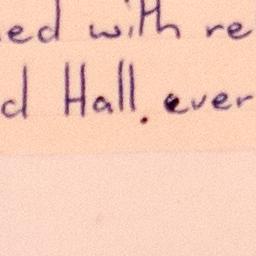 ed with re
d Hall. ever